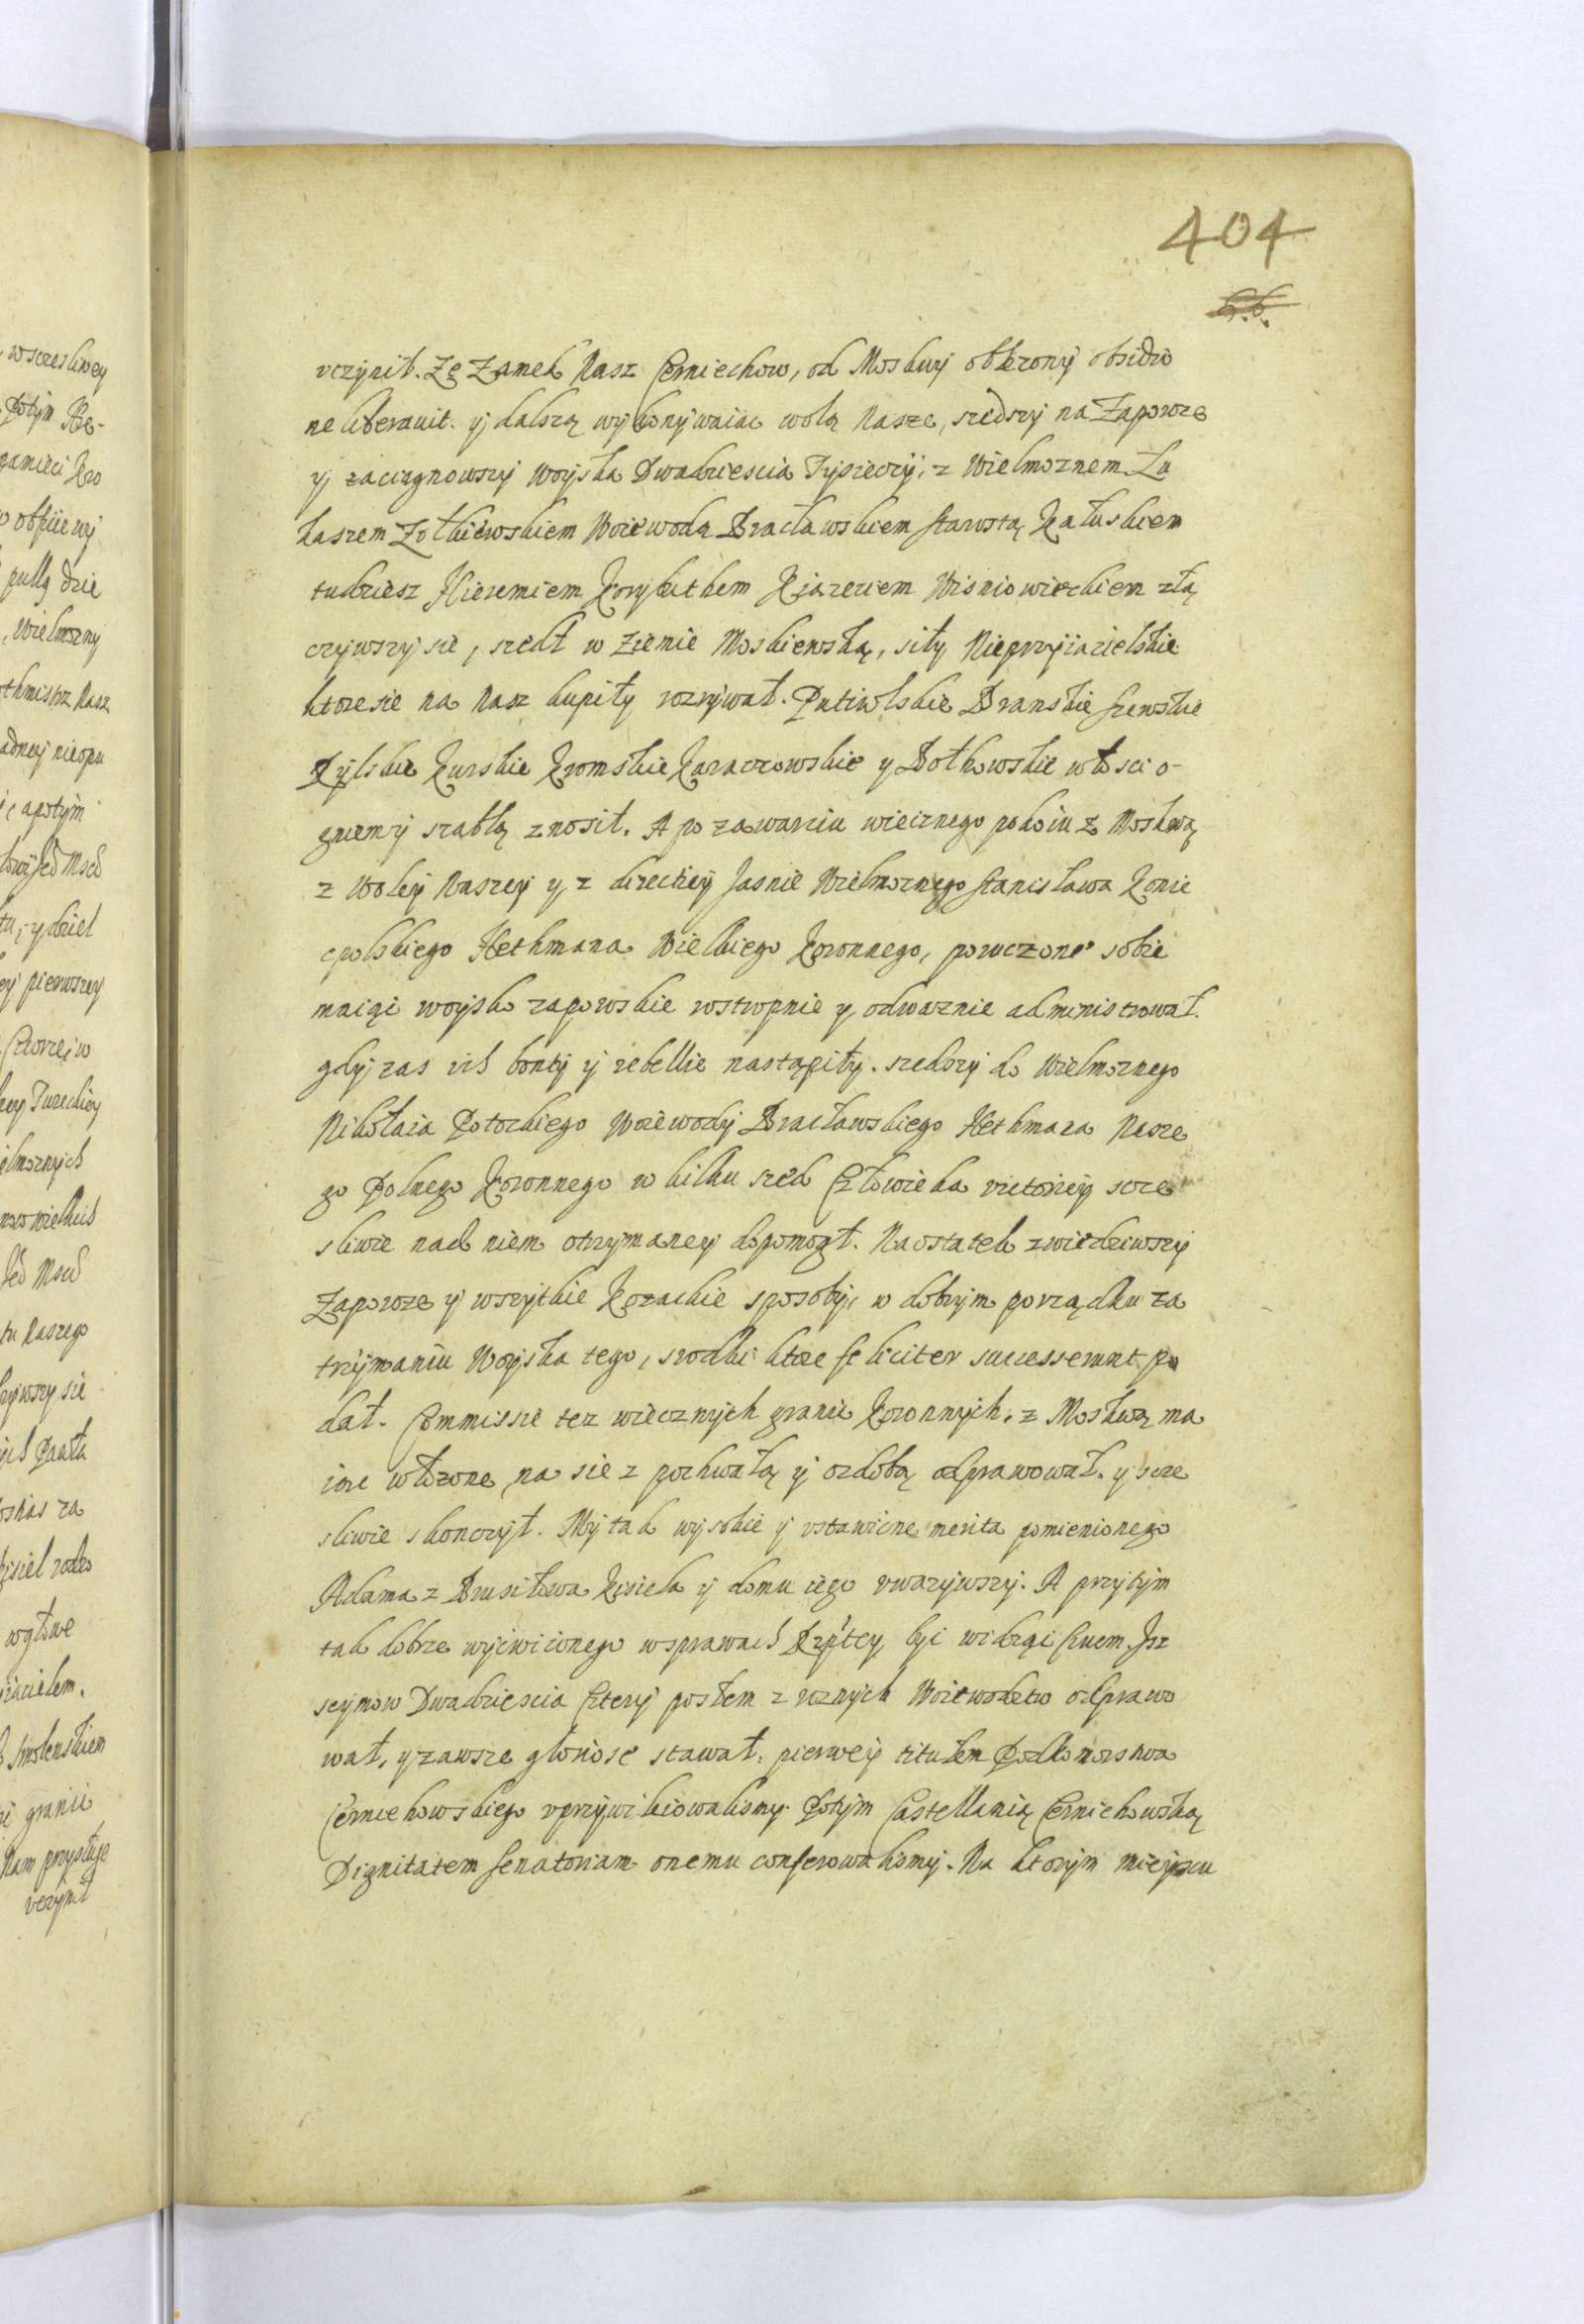 404
vczynił. Zę Zamek Nasz Czerniechow, od Moskwy obtoczony obsidio
ne liberauit. y dalszą wykonywaiąc wolą Nasze, szedszy na Zaporoże
y zaciągnowszy woyska Dwadziescia Tysięczy, z Wielmoznem Łu
kaszem Zołkiewskiem Woiewodą Bracławskiem starostą Kałuskiem
tudziesz Hieremiem Korybuthem Xiązęciem Wisniowieckiem złą
czywszy sie, szedł w ziemie Moskiewską, siły Nieprzyiacielskie
ktore sie na Nasz kupiły rozrywał. Putiwlskie Branskie siewskie
Rylskie Kurskie Kromskie Karaczowskie y Bołhowskie włosci o-
gniem y szablą znosił. A po zawarciu wiecznego pokoiu z Moskwą
z Woley Naszey y z direchiey Jasnie Wielmoznego Stanisława Konie
cpolskiego Hethmana Wielkiego Koronnego, poruczone sobie
maiąc woysko zaporowskie wstropnie y odwaznie administrował.
gdy zas ich bonty y rebellie nastąpiły. szedszy do Wielmoznego
Nikołaia Potockiego Woiewody Bracławskiego Hethmana Nasze
go Polnego Koronnego w kilku szed Człowieka victoriey szcze
sliwie nad niem otrzymaney dopomogł. Naostatek zwiedziwszy
Zaporoze y wszytkie Kozackie sposoby, w dobrym porządku za
trzymaniu Woyska tego, srodki ktore feliciter successerunt po
dał. Commissie tez wiecznych granic Koronnych, z Moskwą ma
iąc włozone na sie z pochwałą y ozdobą odprawował. y szcze
sliwie skonczył. My tak wysokie y vstawiczne merita pomienionego
Adama z Brusiłowa Kisiela y domu iego vwazywszy. A przytym
tak dobrze wyćwiczonego w sprawach Rzptey być widząc Cnem. Jsz
seymow Dwadziescia Cztery posłem z roznych Woiewodztw odprawo
wał, y zawsze gloriose stawał, pierwey titułem Podkomorstwa
Czerniehowskiego vprzywileiowalismy. Potym Castellanią Czernichowską
Dignitatem Senatoriam onemu conferowalismy. Na ktorym mieyscu